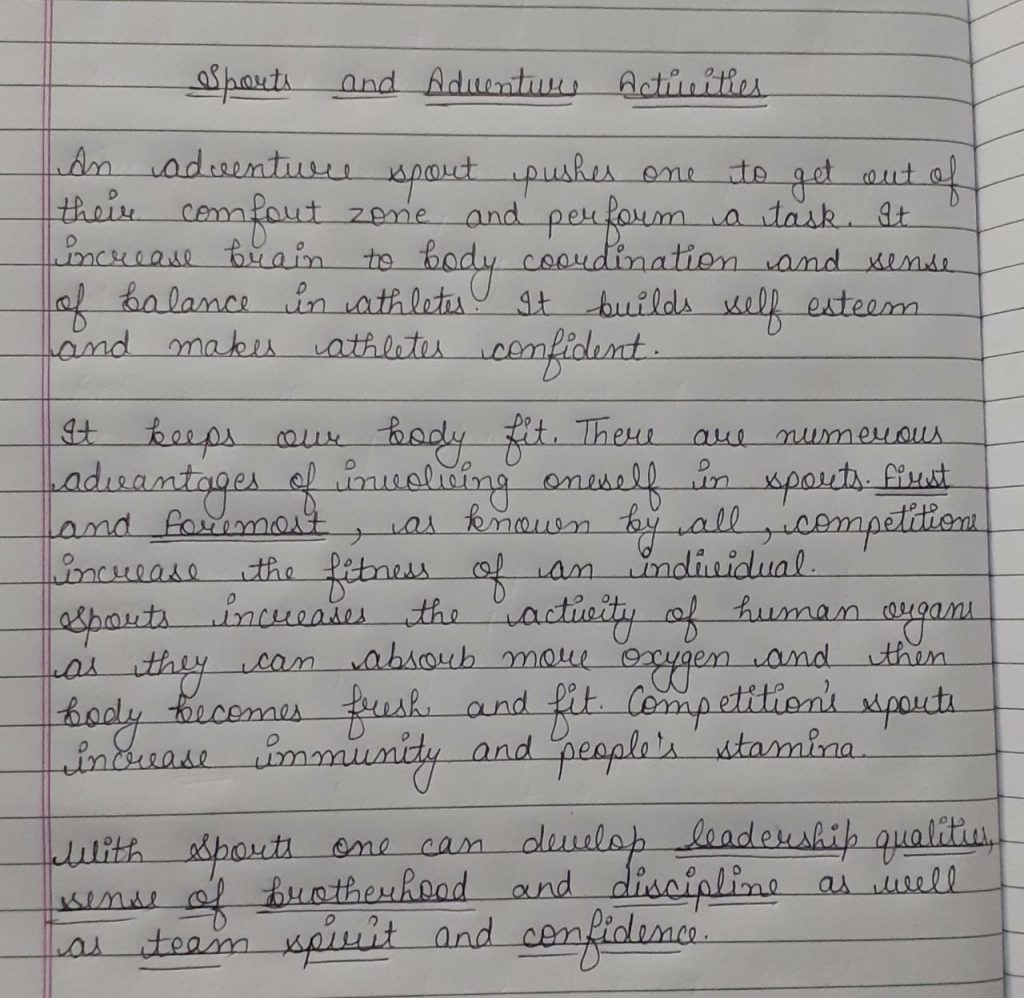 Sports and Adventure Activities
An adventure sport pushes one to get out of
their comfort zone and perform a task. It
increase brain to body coordination and sense
of balance in athletes. It builds self esteem
and makes athletes confident.
It keeps our body fit. There are numerous
advantages of involving oneself in sports. First
and foremost, as known by all, competitions
increase the fitness of an individual.
Sports increases the activity of human organs
as they can absorb more oxygen and then
body becomes fresh and fit. Competition's sports
increase immunity and people's stamina.
With sports one can develop leadership qualities,
sense of brotherhood and discipline as well
as team spirit and confidence.